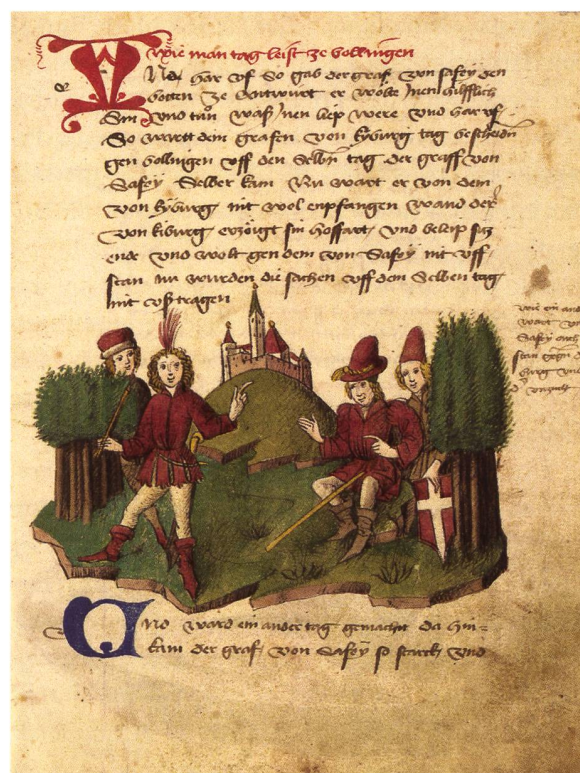 Wie man tag leist ze bollingen
Nd har vf So gab der graf von safoy den
botten ze antwurt er wolte Jnen hilfflich
Sin vnd tůn waß Jnen liep were Vnd har vf
So wartt dem grafen von kyburg tag bescheiden
gen bollingen vff den selbn tag der graff von
Safoy Selber kam Nu wart er von dem
von kyburg nit wol enpfangen wand der
von kiburg erzöigt sin hoffart vnd beleip siz
ende vnd wolt gen dem von Safoy nit vff
stan nu wurden die sachen vff dem Selben tag
nit vß tragen
wie ein and
wart
Safoy auch
stan gegen d
burg vnd
Vnd ward ein ander tag gemacht da hin=
kam der graf von Safoy so starck vnd